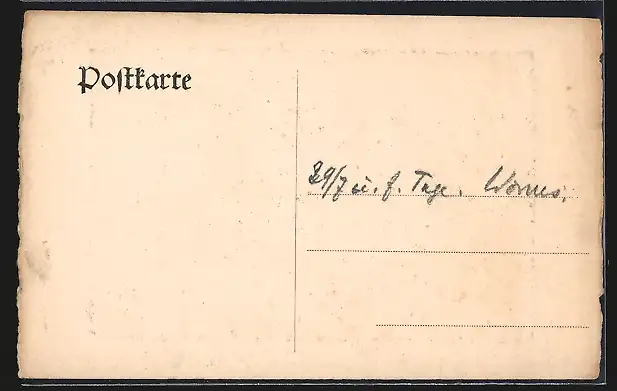 Postkarte
29/7 u. f. Tage. Worms.